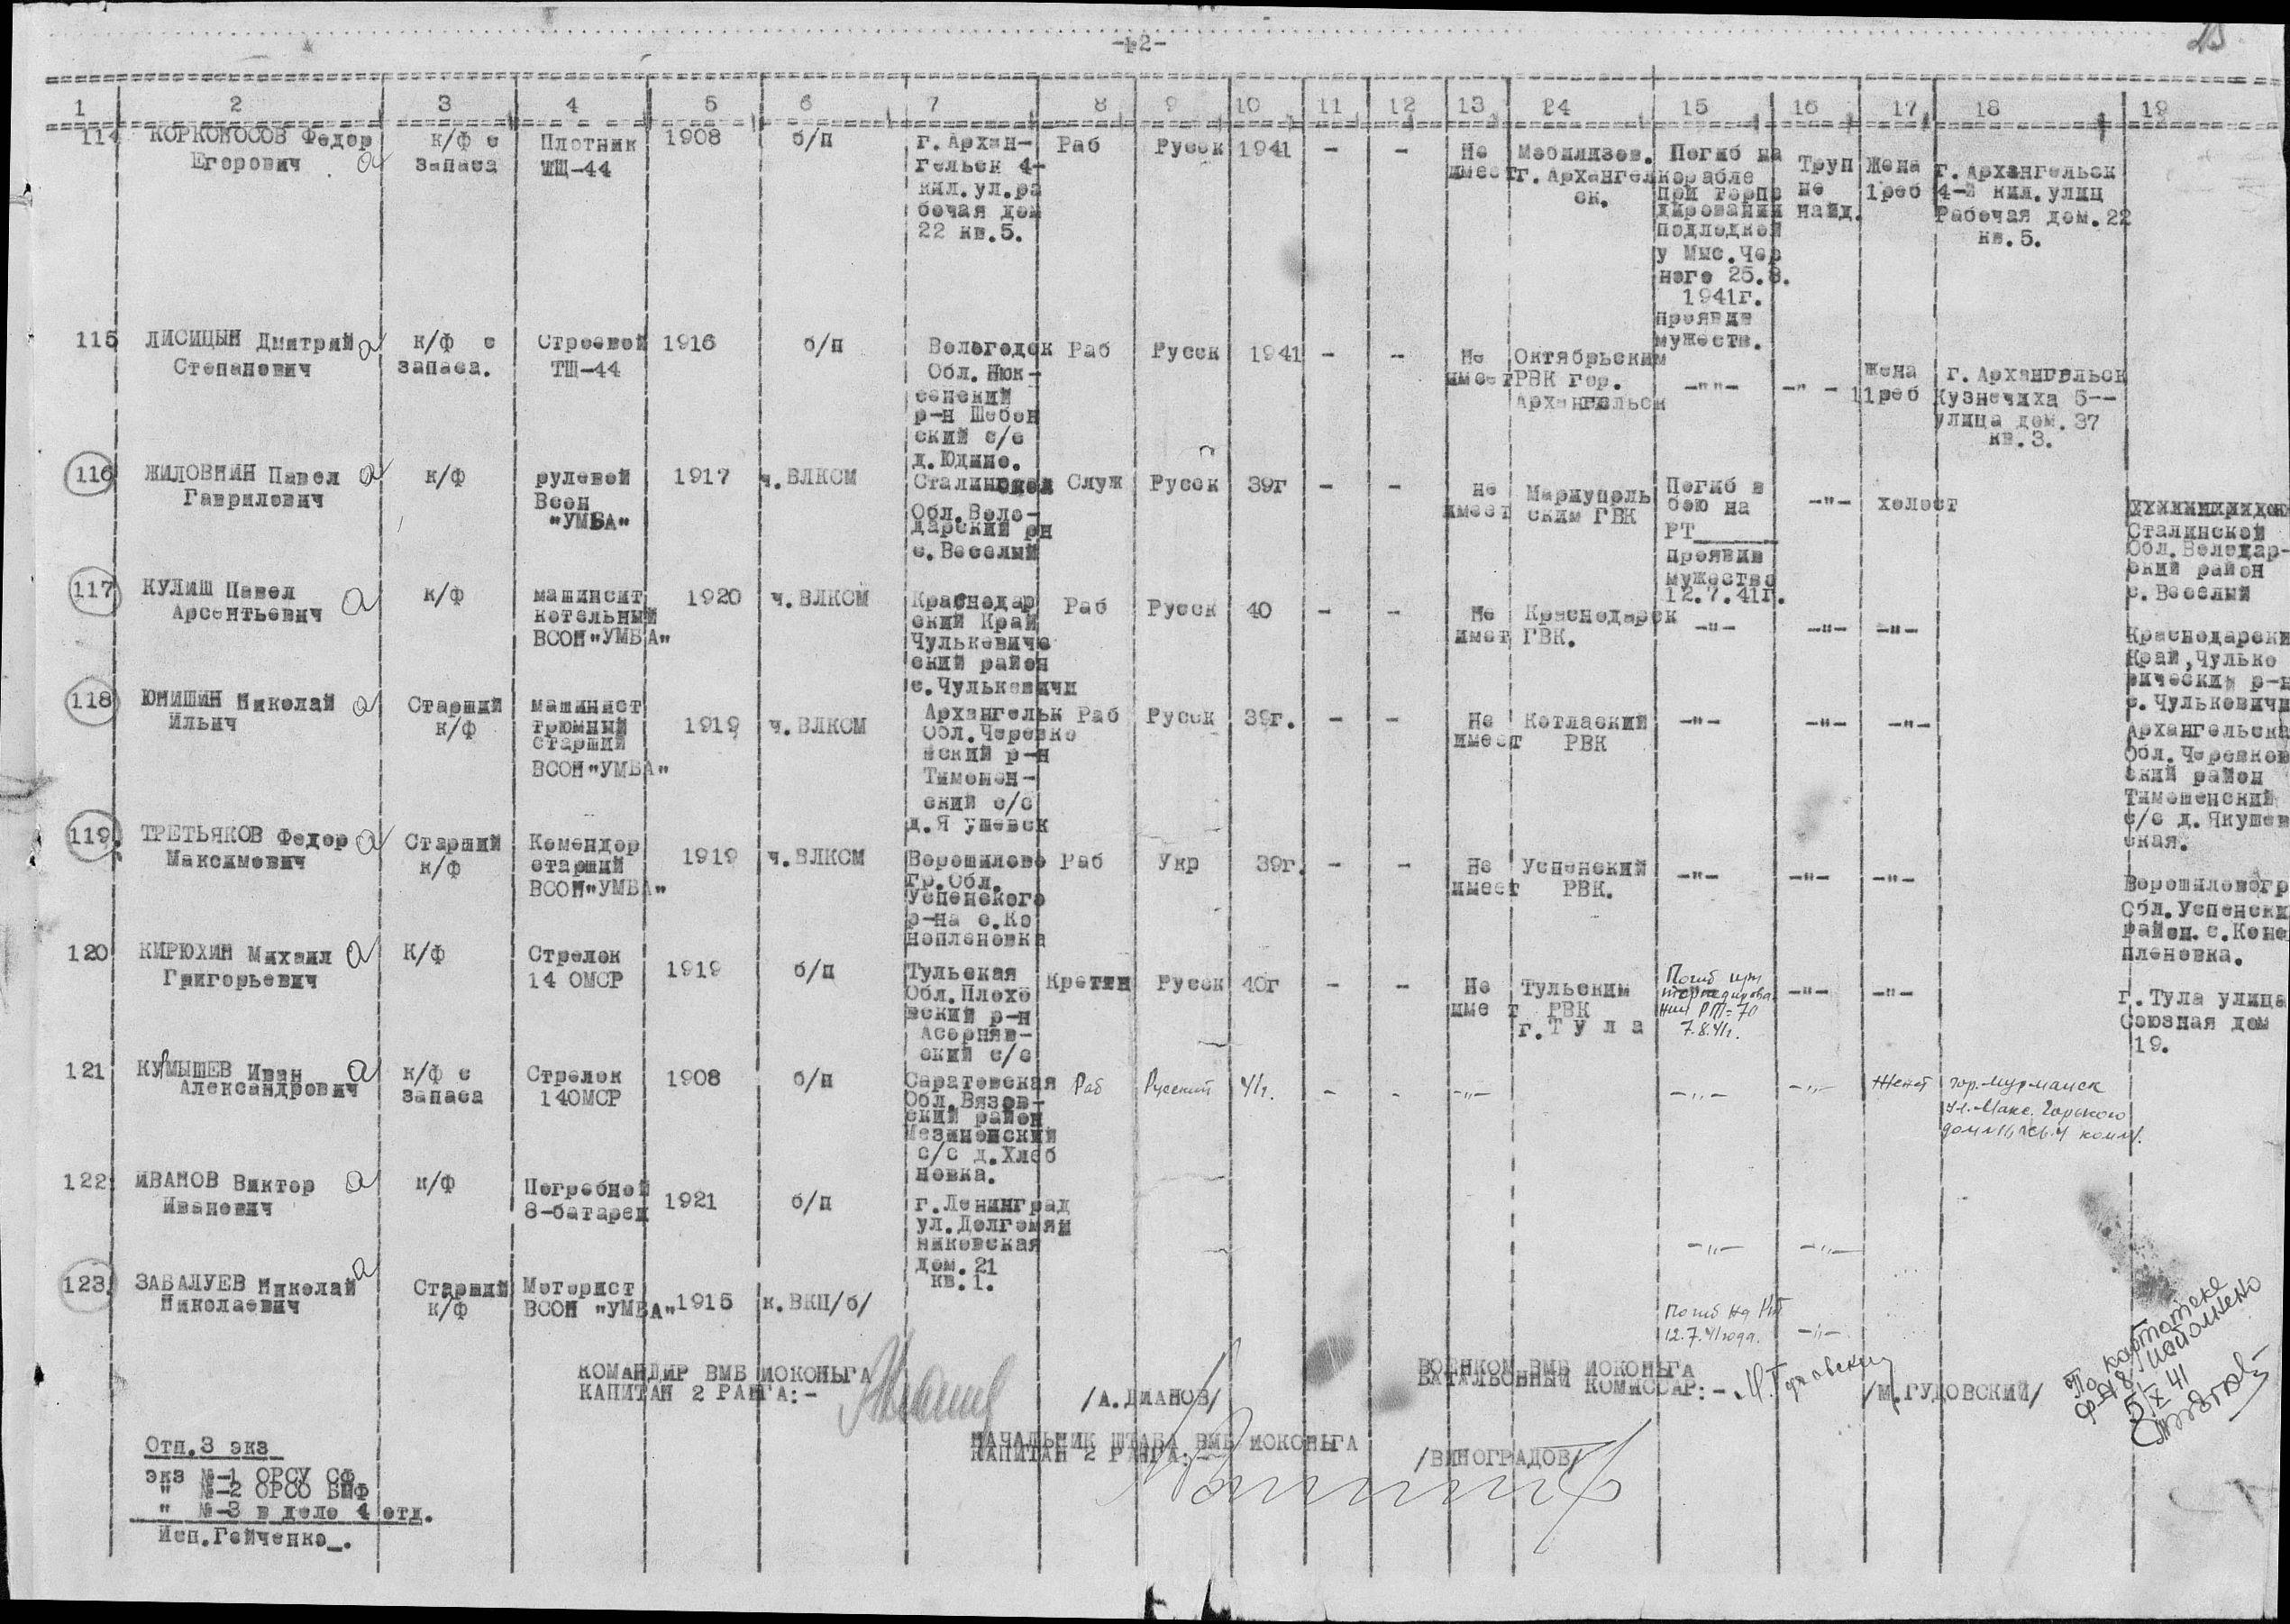 -12-
1 2 3 4 5 6 7 8 9 10 11 12 13 14 15 16 17 18 19
114 КОРКОНОСОВ Федор
Егорович
к/ф с
запаса
Плотник
ТЩ-44
1908
б/п
г.Архан-
гельск 4-
кил.ул.ра
бочая дом
22 кв.5.
Раб
Русск
1941
-
-
Не
имеет
Мобилизов.
г.Архангел
ск.
Погиб на
корабле
при торпе
дировании
подлодкой
у Мыс.Чер
ного 25.8.
1941г.
проявив
мужеств.
Труп
не
найд.
Жена
1реб
г.Архангельск
4-й кил.улиц
Рабочая дом.22
кв.5.
115 ЛИСИЦЫН Дмитрий
Степанович
к/ф с
запаса.
Строевой
ТЩ-44
1916
б/п
Вологодск
Обл.Нюк-
сенский
р-н Шебен
ский с/с
д.Юдино.
Раб
Русск
1941
-
-
Не
имеет
Октябрьским
РВК гор.
Архангельск
-""-
-" -
Жена
1реб
г.Архангельск
Кузнечиха 5--
улица дом.37
кв.3.
116 ЖИЛОВНИН Павел
Гаврилович
к/ф
рулевой
Всон
"УМБА"
1917
ч.ВЛКСМ
Сталинской
Обл.Воло-
дарский рн
с.Веселый
Служ
Русск
39г
-
-
Не
имеет
Мариуполь
ским ГВК
Погиб в
бою на
РТ
проявив
мужество
12.7.41г.
-"-
холост
Сталинской
Обл.Володар-
ский район
с.Веселый
117 КУЛИШ Павел
Арсентьевич
к/ф
машинсит
котельный
ВСОН"УМБА"
1920
ч.ВЛКСМ
Краснодар
ский Край
Чулькевиче
ский район
с.Чулькевичи
Раб
Русск
40
-
-
Не
имет
Краснодарск
ГВК.
-"-
-"-
-"-
Краснодарски
Край,Чулько
вический р-н
с.Чулькевичи
118 ЮНИШИН Николай
Ильич
Старший
к/ф
машинист
трюмный
старший
ВСОН"УМБА"
1919
ч.ВЛКСМ
Архангельк
Обл.Черевко
вский р-н
Тимошен-
ский с/с
д.Я ушевск
Раб
Русск
39г.
-
-
Не
имеет
Котлаский
РВК
-"-
-"-
-"-
Архангельска
Обл.Черевков
ский район
Тимошенский
с/с д.Якушев
ская.
119. ТРЕТЬЯКОВ Федор
Максимович
Старший
к/ф
Комендор
старший
ВСОН"УМБА"
1919
ч.ВЛКСМ
Ворошилово
Гр.Обл.
Успенского
р-на с.Ко
нопленовка
Раб
Укр
39г.
-
-
Не
имеет
Успенский
РВК.
-"-
-"-
-"-
Ворошиловогр
Обл.Успенски
район.с.Коно
пленовка.
120 КИРЮХИН Михаил
Григорьевич
К/ф
Стрелок
14 ОМСР
1919
б/п
Тульская
Обл.Плохо
вский р-н
Асорняв-
ский с/с
Крстян
Русск
40г
-
-
Не
име т
Тульским
РВК
г.Т у л а
Погиб при
торпедирова
нии РТ-70
7.8.41г.
-"-
-"-
г.Тула улица
Союзная дом
19.
121 КУМЫШЕВ Иван
Александрович
к/ф с
запаса
Стрелок
14ОМСР
1908
б/п
Саратовская
Обл.Вязов-
ский район
Мезиненский
с/с д.Хлеб
новка.
Раб
Русский
41г.
-
-
-"-
-"-
-"-
Женат
гор.Мурманск
ул.Макс.Горького
122 ИВАНОВ Виктор
Иванович
к/ф
Погребной
8-батареи
1921
б/п
г.Ленинград
ул.Долгомяи
никовская
дом.21
кв.1.
-"-
-"-
123. ЗАБАЛУЕВ Николай
Николаевич
Старший
к/ф
Моторист
ВСОН "УМБА"
1915
к.ВКП/б/
Погиб на РТ
12.7.41года.
-"-
КОМАНДИР ВМБ ИОКОНЬГА
КАПИТАН 2 РАНГА:-
/А.ДИАНОВ/
ВОЕНКОМ ВМБ ИОКОНЬГА
БАТАЛЬОННЫЙ КОМИССАР:-
М.Гудовский
/М.ГУДОВСКИЙ/
НАЧАЛЬНИК ШТАБА ВМБ ИОКОНЬГА
КАПИТАН 2 РАНГА:-
/ВИНОГРАДОВ/
По картотеке
5/X 41
Отп.3 экз
экз №-1 ОРСУ СФ
" №-2 ОРСО БМФ
" №-3 в деле 4 отд.
Исп.Гейченко_.